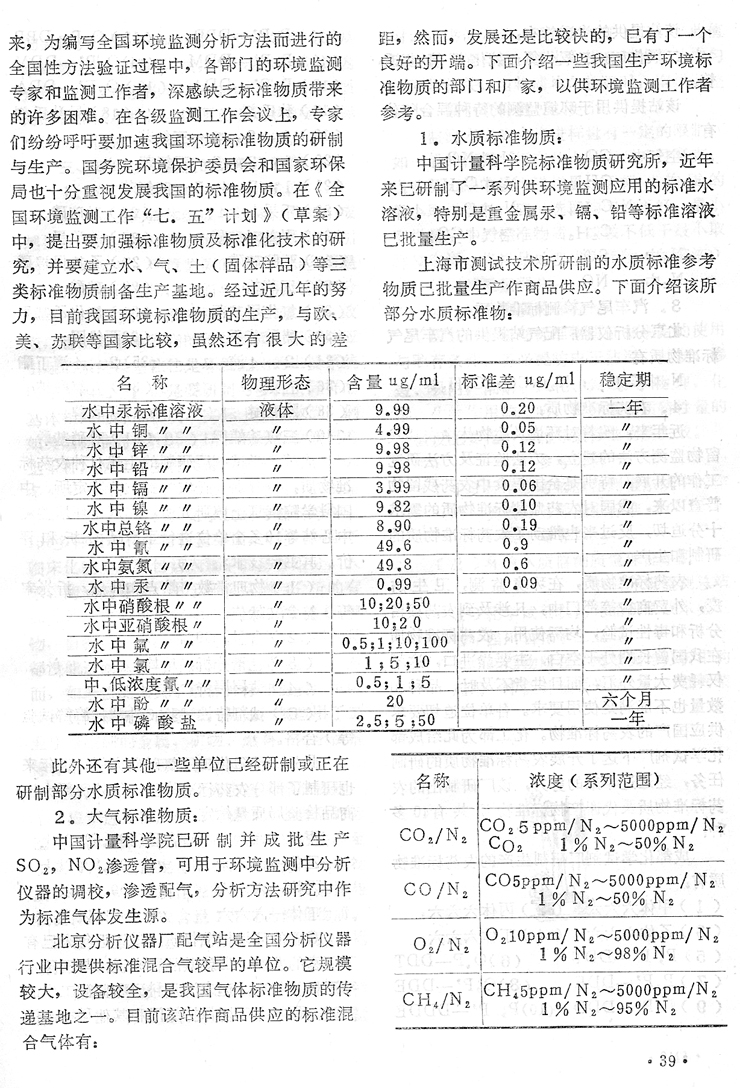 来，为编写全国环境监测分析方法而进行的
全国性方法验证过程中，各部门的环境监测
专家和监测工作者，深感缺乏标准物质带来
的许多困难。在各级监测工作会议上，专家
们纷纷呼吁要加速我国环境标准物质的研制
与生产。国务院环境保护委员会和国家环保
局也十分重视发展我国的标准物质。在《全
国环境监测工作“七．五”计划》（草案）
中，提出要加强标准物质及标准化技术的研
究，并要建立水、气、土（固体样品）等三
类标准物质制备生产基地。经过近几年的努
力，目前我国环境标准物质的生产，与欧、
美、苏联等国家比较，虽然还有很大的差
距，然而，发展还是比较快的，已有了一个
良好的开端。下面介绍一些我国生产环境标
准物质的部门和厂家，以供环境监测工作者
参考。
1．水质标准物质：
中国计量科学院标准物质研究所，近年
来已研制了一系列供环境监测应用的标准水
溶液，特别是重金属汞、镉、铅等标准溶液
已批量生产。
上海市测试技术所研制的水质标准参考
物质已批量生产作商品供应。下面介绍该所
部分水质标准物：
名 称 物理形态 含量 ug/ml 标准差 ug/ml 稳定期
水中汞标准溶液 液体 9.99 0.20 一年
水中铜〃〃 〃 4.99 0.05 〃
水中锌〃〃 〃 9.98 0.12 〃
水中铅〃〃 〃 9.98 0.12 〃
水中镉〃〃 〃 3.99 0.06 〃
水中镍〃〃 〃 9.82 0.10 〃
水中总铬〃〃 〃 8.90 0.19 〃
水中氰〃〃 〃 49.6 0.9 〃
水中氨氮〃〃 〃 49.8 0.6 〃
水中汞〃〃 〃 0.99 0.09 〃
水中硝酸根〃〃 〃 10;20;50 〃
水中亚硝酸根〃 〃 10;20 〃
水中氟〃〃 〃 0.5;1;10;100 〃
水中氯〃〃 〃 1;5;10 〃
中、低浓度氰〃〃 〃 0.5;1;5 〃
水中酚〃〃 〃 20 六个月
水中磷酸盐 〃 2.5;5;50 一年
此外还有其他一些单位已经研制或正在
研制部分水质标准物质。
2．大气标准物质：
中国计量科学院已研制并成批生产
SO₂，NO₂渗透管，可用于环境监测中分析
仪器的调校，渗透配气，分析方法研究中作
为标准气体发生源。
北京分析仪器厂配气站是全国分析仪器
行业中提供标准混合气较早的单位。它规模
较大，设备较全，是我国气体标准物质的传
递基地之一。目前该站作商品供应的标准混
合气体有：
名称 浓度（系列范围）
CO₂/N₂ CO₂5ppm/N₂～5000ppm/N₂
CO₂ 1％N₂～50％N₂
CO/N₂ CO5ppm/N₂～5000ppm/N₂
1％N₂～50％N₂
O₂/N₂ O₂10ppm/N₂～5000ppm/N₂
1％N₂～98％N₂
CH₄/N₂ CH₄5ppm/N₂～5000ppm/N₂
1％N₂～95％N₂
·39·